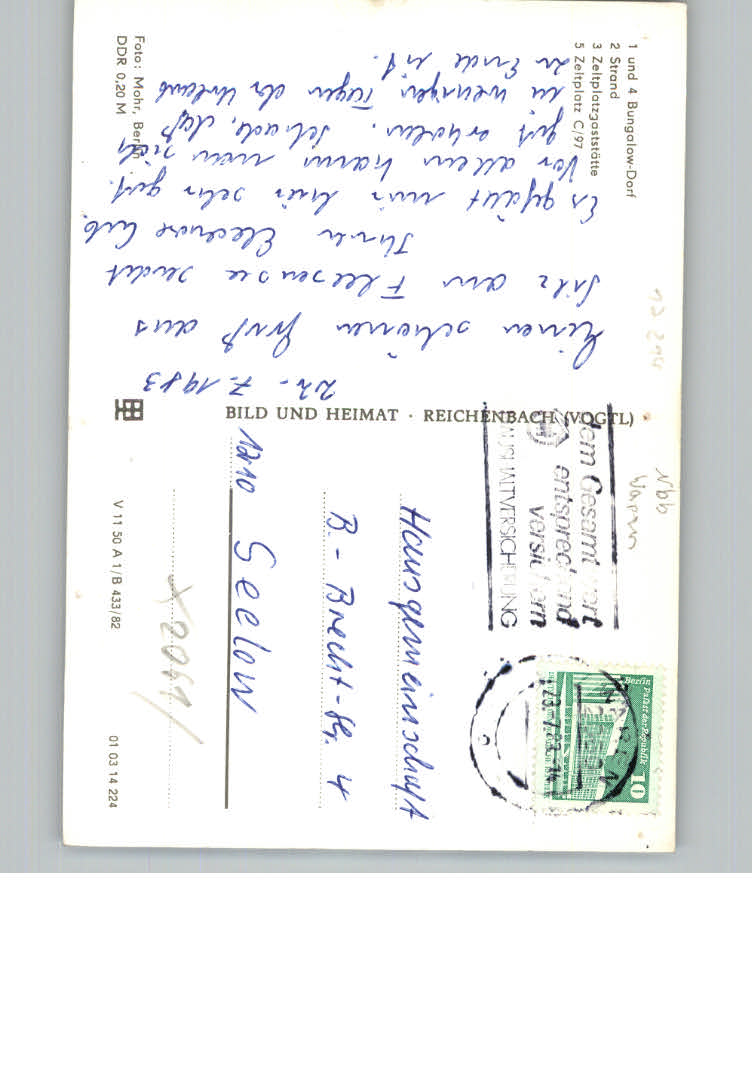 1 und 4 Bungalow-Dorf
2 Strand
3 Zeltplatzgaststätte
5 Zeltplatz C/97
22. 7. 1983
Einen schönen Gruß aus
Silz am Fleesensee sendet
Ihnen Eleonore
Es gefällt mir hier sehr gut.
Vor allem kann man sich
gut erholen. Schade, daß
in wenigen Tagen der Urlaub
zu Ende ist.
Foto: Mohr, Berlin
DDR 0,20 M
BILD UND HEIMAT · REICHENBACH (VOGTL)
V 11 50 A 1/B 433/82
01 03 14 224
dem Gesamtwert
entsprechend
versichern
HAUSHALTVERSICHERUNG
Berlin Palast der Republik
10
DDR
23.-7.83.-14
Hausgemeinschaft
B.-Brecht-Str. 4
1210 Seelow
x 2061/
Nbb
Waren